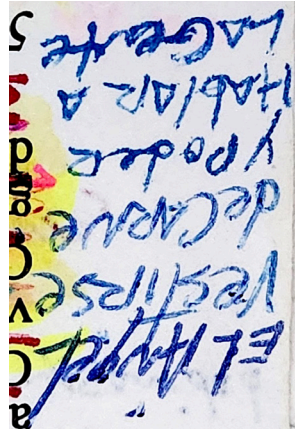 EL Angel
vestirse
de CARNE
y Poder
HABlAR A
LA Gente